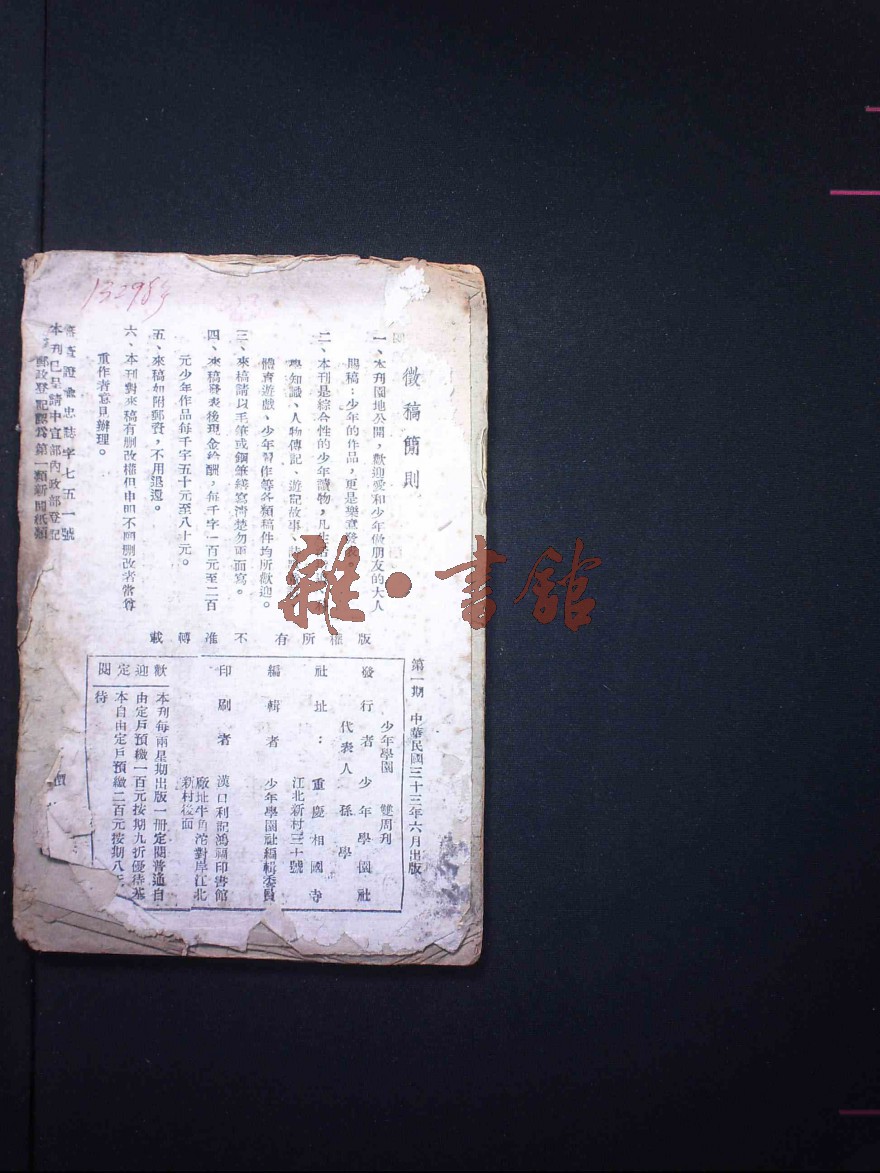 徵稿簡則
一、本刊園地公開，歡迎愛和少年做朋友的大人
賜稿；少年的作品，更是樂意發
二、本刊是綜合性的少年讀物，凡生
學知識、人物傳記、遊記故事、
體育遊戲、少年習作等各類稿件均所歡迎。
三、來稿請以毛筆或鋼筆繕寫清楚勿兩面寫。
四、來稿發表後現金給酬，每千字一百元至二百
元少年作品每千字五十元至八十元。
五、來稿如附郵資，不用退還。
六、本刊對來稿有删改權但申明不願删改者當尊
重作者意見辦理。
審查證 忠誌字七五一號
本刊已呈請中宣部內政部登記
郵政登記認為第一類新聞紙類
版權所有不准轉載
第一期 中華民國三十三年六月出版
少年學園 雙周刊
發行者 少年學園社
代表人 孫學
社址：重慶相國寺
江北新村三十號
編輯者 少年學園社編輯委員
印刷者 漢口利記鴻福印書館
廠址牛角沱對岸江北
新村後面
歡迎定閱
本刊每兩星期出版一册定閱普通自
由定戶預繳一百元按期九折優待基
本自由定戶預繳二百元按期八
待
價
13298
雜·書館